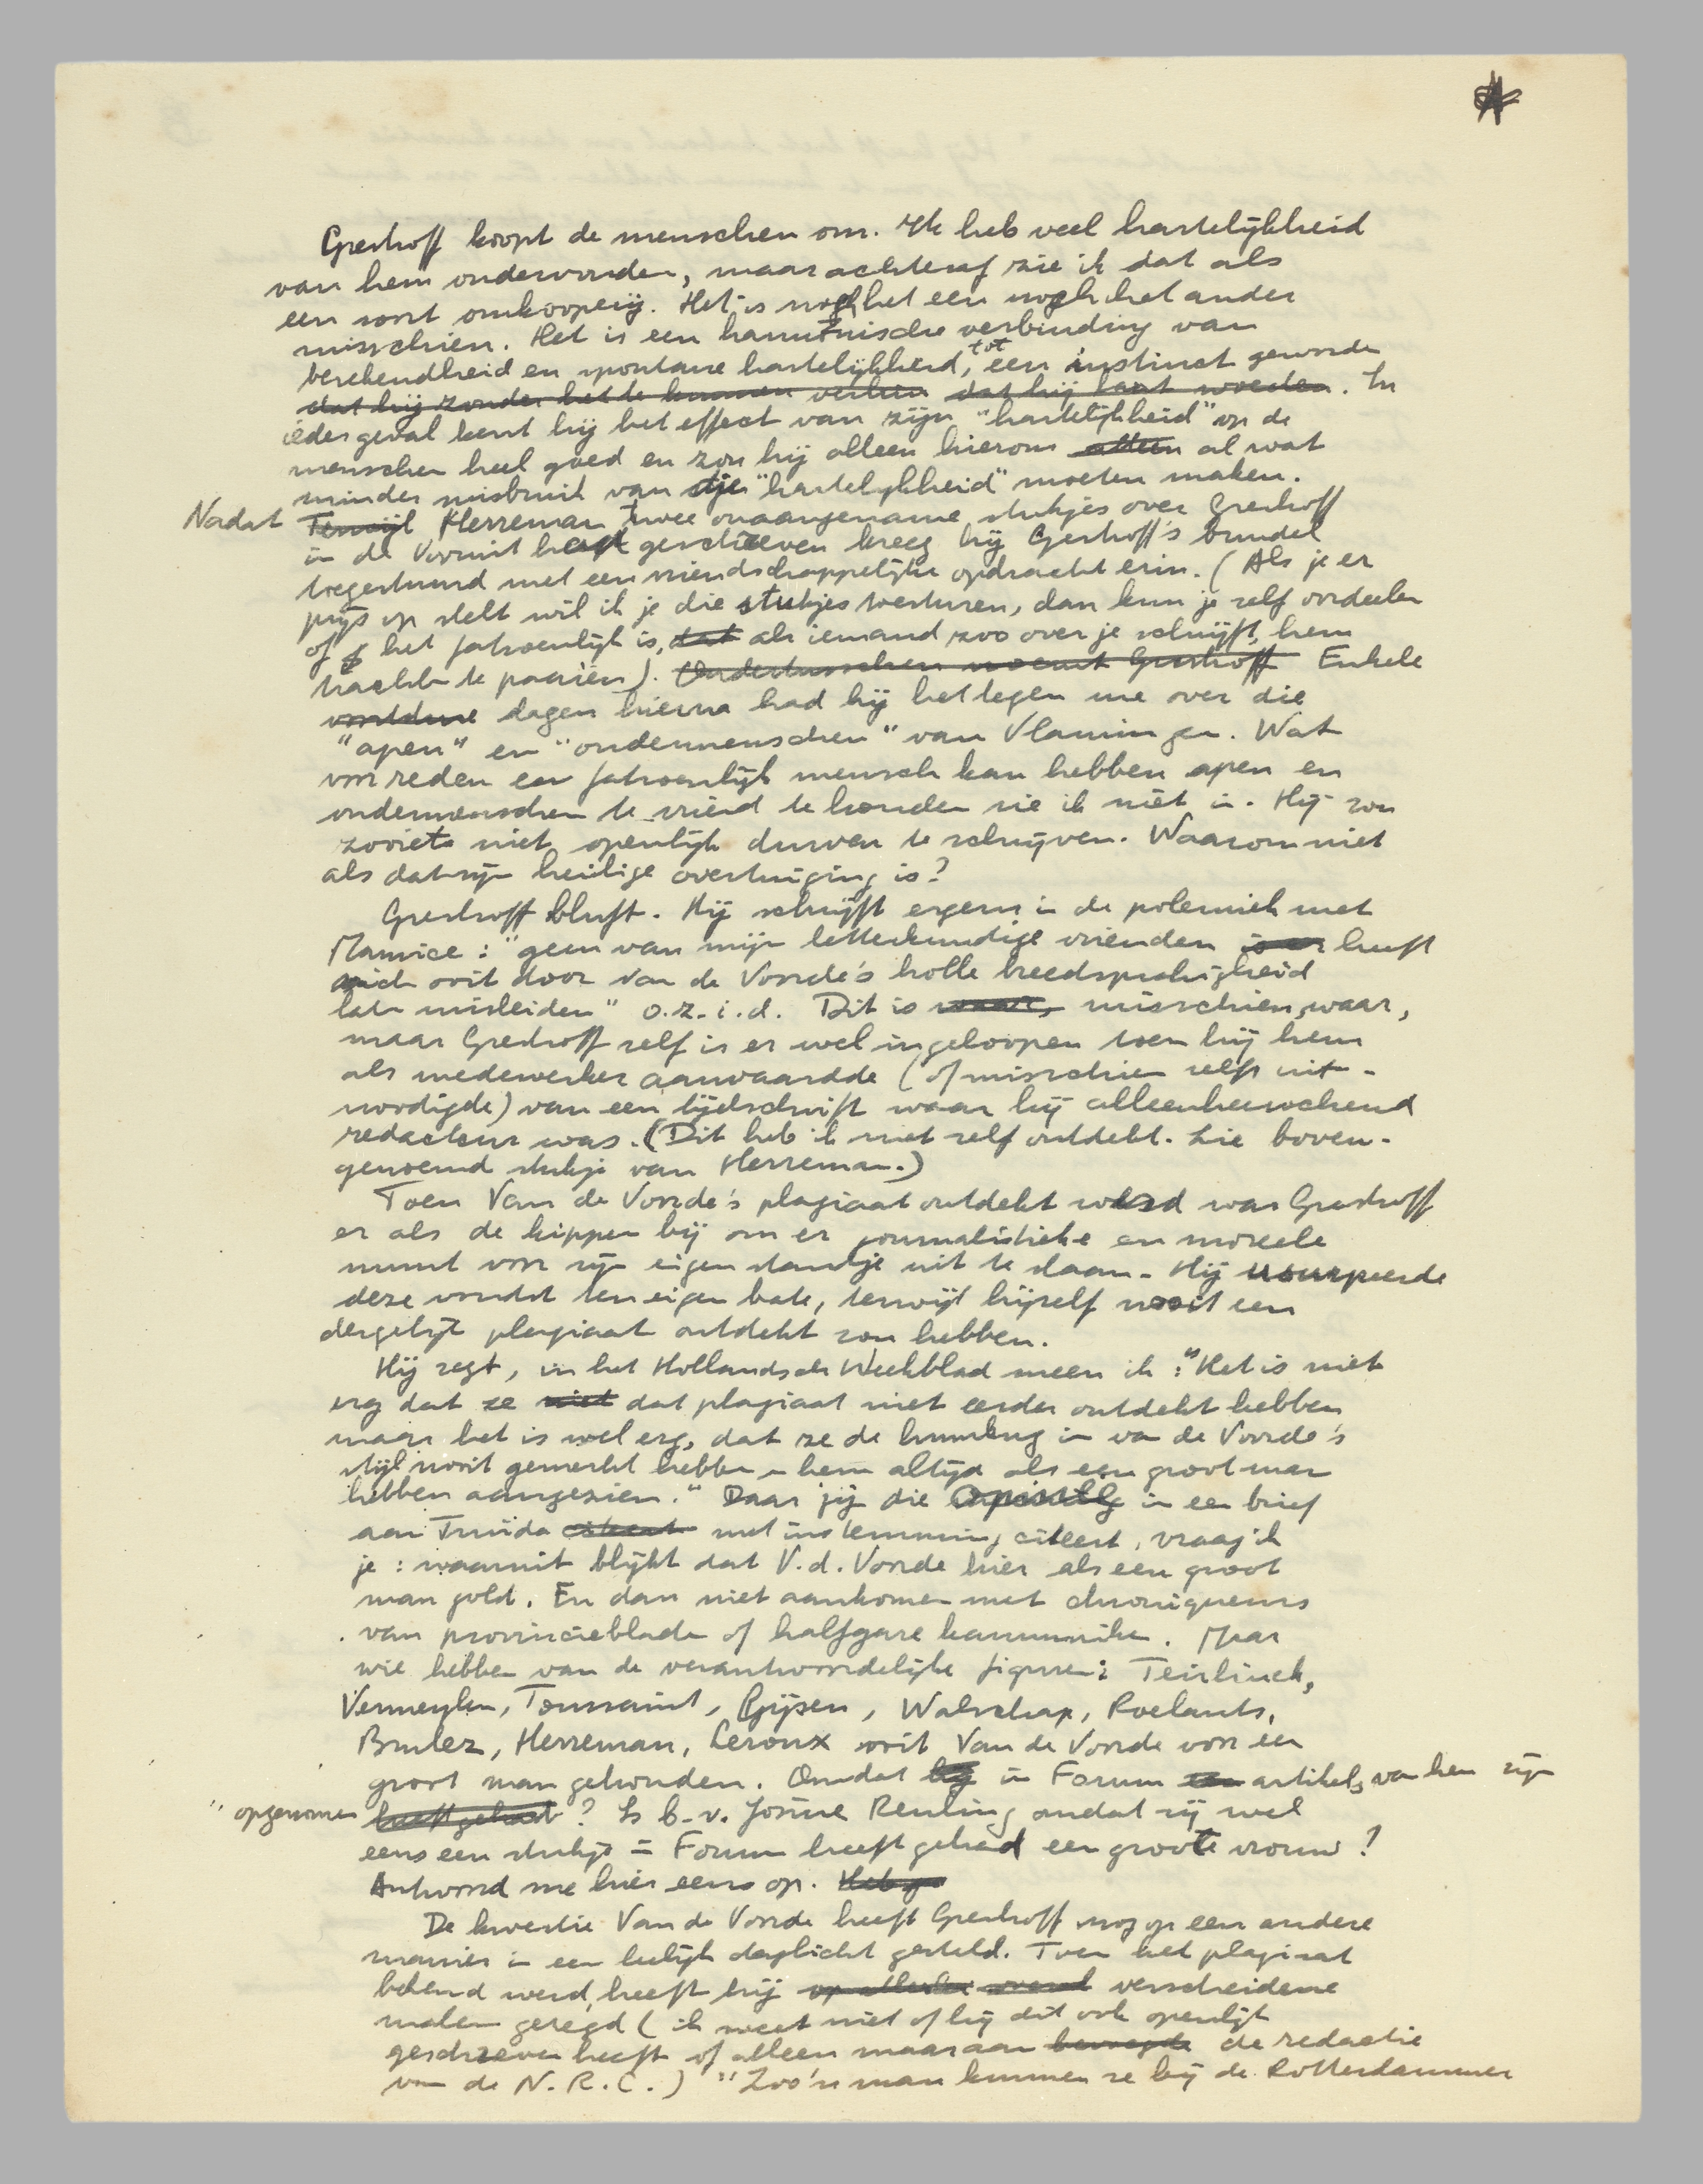 Greshoff koopt de menschen om. Ik heb veel hartelijkheid
van hem ondervonden, maar achteraf zie ik dat als
een soort omkooperij. Het is noch het een noch het ander
misschien. Het is een harmonische verbinding van
berekendheid en spontane hartelijkheid, tot een instinct geworden
dat hij zonder het te kunnen verhelen dat hij laat worden. In
ieder geval kent hij het effect van zijn "hartelijkheid" op de
menschen heel goed en zou hij alleen hierom alleen al wat
minder misbruik van die "hartelijkheid" moeten maken.
Nadat Terwijl Herreman twee onaangename stukjes over Greshoff
in de Vooruit had geschreven kreeg hij Greshoff's bundel
toegestuurd met een vriendschappelijke opdracht erin. (Als je er
prijs op stelt wil ik je die stukjes toesturen, dan kun je zelf oordeelen
of het fatsoenlijk is, dat als iemand zoo over je schrijft, hem
trachten te paaien). Ondertusschen noemt Greshoff Enkele
dagen hierna had hij het tegen me over die
"apen" en "ondermenschen" van Vlamingen. Wat
voor reden een fatsoenlijk mensch kan hebben apen en
ondermenschen te vriend te houden zie ik niet in. Hij zou
zooiets niet openlijk durven te schrijven. Waarom niet
als dat zijn heilige overtuiging is?
Greshoff bluft. Hij schrijft ergens in de polemiek met
Maurice: "geen van mijn letterkundige vrienden is er heeft
zich ooit door Van de Voorde's holle breedsprakigheid
laten misleiden" o.z.i.d. Dit is waar, misschien waar,
maar Greshoff zelf is er wel ingeloopen toen hij hem
als medewerker aanvaardde (of misschien zelfs uit-
noodigde) van een tijdschrift waar hij alleenheerschend
redacteur was. (Dit heb ik niet zelf ontdekt. Zie boven-
genoemd stukje van Herreman.)
Toen Van de Voorde's plagiaat ontdekt werd was Greshoff
er als de kippen bij om er journalistieke en moreele
munt voor zijn eigen standje uit te slaan. Hij usurpeerde
deze vondst ten eigen bate, terwijl hijzelf nooit een
dergelijk plagiaat ontdekt zou hebben.
Hij zegt, in het Hollandsch Weekblad meen ik: "Het is niet
erg dat ze niet dat plagiaat niet eerder ontdekt hebben
maar het is wel erg, dat ze de humbug in van de Voorde's
stijl nooit gemerkt hebben en hem altijd als een groot man
hebben aangezien." Daar jij die opinie in een brief
aan Truida citeert met instemming citeert, vraag ik
je: waaruit blijkt dat V.d. Voorde hier als een groot
man gold. En dan niet aankomen met chroniqueurs
van provinciebladen of halfgare kanunniken. Maar
wie hebben van de verantwoordelijke figuren: Teirlinck,
Vermeylen, Toussaint, Gijsen, Walschap, Roelants,
Brulez, Herreman, Leroux ooit Van de Voorde voor een
groot man gehouden. Omdat hij in Forum een artikels van hem zijn
opgenomen heeft gehad? Is b.v. Josine Reuling omdat zij wel
eens een stukje in Forum heeft gehad een groote vrouw?
Antwoord me hier eens op. Heb je
De kwestie Van de Voorde heeft Greshoff nog op een andere
manier in een leelijk daglicht gesteld. Toen het plagiaat
bekend werd, heeft hij op allerlei overal verscheidene
malen gezegd (ik weet niet of hij dit ook openlijk
geschreven heeft of alleen maar aan bevoegde de redactie
van de N.R.C.) "Zoo'n man kunnen ze bij de Rotterdammer